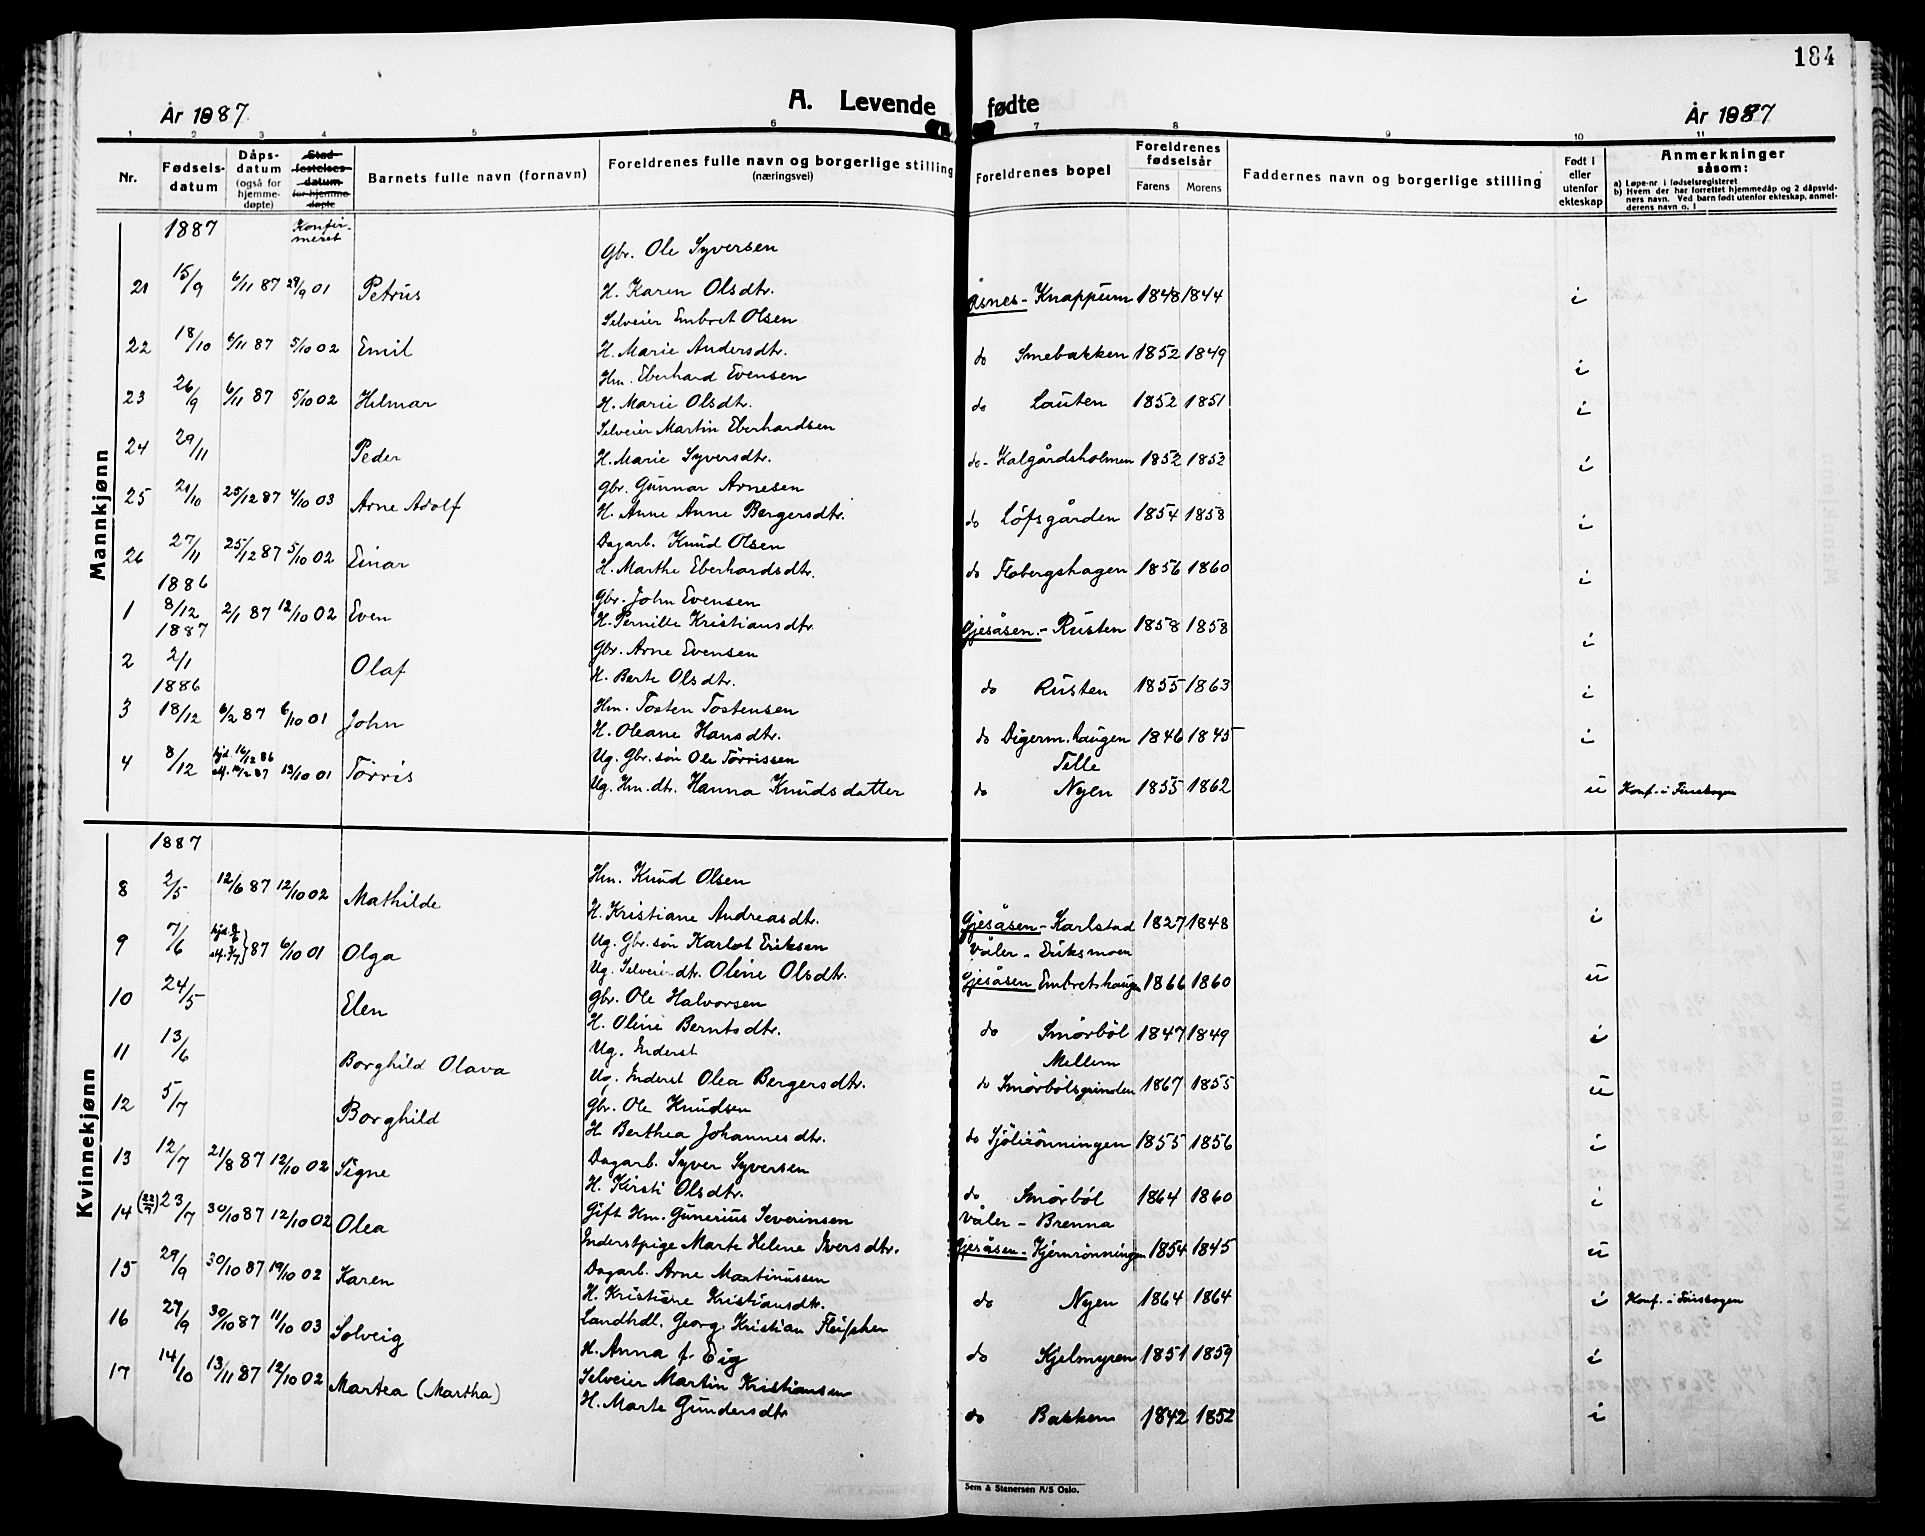 184
A. Levende fødte
År 1887.
År 1887
1 2 3 4 5 6 7 8 9 10 11
Nr. Fødsels-datum Dåps-datum (også for hjemme-døpte) Stad-festelses-datum for hjemme-døpte Barnets fulle navn (fornavn) Foreldrenes fulle navn og borgerlige stilling (næringsvei) Foreldrenes bopel Foreldrenes fødselsår Farens Morens Faddernes navn og borgerlige stilling Født i eller utenfor ekteskap Anmerkninger såsom:
a) Løpe-nr. i fødselsregisteret
b) Hvem der har forrettet hjemmedåp og 2 dåpsvid-
ners navn. Ved barn født utenfor ekteskap, anmel-
derens navn o. l
Mannkjønn
1887 Konfir-meret
Gbr. Ole Syversen
21 15/9 6/11 87 29/9 01 Petrus H. Karen Olsdtr. Åsnes - Knappum 1848 1844 i
Selveier Embret Olsen
22 18/10 6/11 87 5/10 02 Emil H. Marie Andersdtr. do Smebakken 1852 1849 i
Hm. Eberhard Evensen
23 26/9 6/11 87 5/10 02 Hilmar H. Marie Olsdtr. do Lauten 1852 1851 i
Selveier Martin Eberhardsen
24 29/11 Peder H. Marie Syversdtr. do - Halgårdsholmen 1852 1852 i
Gbr. Gunnar Arnesen
25 21/10 25/12 87 4/10 03 Arne Adolf H. Anne Anne Bergersdtr. do Löfsgården 1854 1858 i
Dagarb. Knud Olsen
26 27/11 25/12 87 5/10 02 Einar H. Marthe Eberhardsdtr. do Flobergshagen 1856 1860 i
1886 Gbr. John Evensen
1 8/12 2/1 87 12/10 02 Even H. Pernille Kristiansdtr. Gjesåsen. - Rusten 1858 1858 i
1887 Gbr. Arne Evensen
2 2/1 Olaf H. Berte Olsdtr. do Rusten 1855 1863 i
1886
3 18/12 6/2 87 6/10 01 John Hm. Tosten Tostensen
H. Oleane Hansdtr. do Digerm.haugen 1846 1845 i
4 8/12 hjd. 16/12 86 Ug. Gbr. søn Ole Törrissen Telle
13/10 01 Törris Ug. Hm. dtr. Hanna Knudsdatter do Nyen 1855 1862 u Konf. i Finskogen
Kvinnekjønn
1887
Hm. Knud Olsen
8 2/5 12/6 87 12/10 02 Mathilde H. Kristiane Andreasdtr. Gjesåsen - Karlstad 1827 1848 i
9 7/6 87 6/10 01 Olga Ug. Gbr. søn Karlot Eriksen Våler - Eriksmoen
Ug. Selveierdtr. Oline Olsdtr. Gjesåsen Embretshaugen 1866 1860 u
10 24/5 Elen Gbr. Ole Halvorsen
H. Oline Berntsdtr. do Smörböl 1847 1849 i
11 13/6 Borghild Olava Ug. Inderst Mellem
Ug. Inderst Olea Bergersdtr. do Smörbölsgrinden 1867 1855 u
12 5/7 Borghild Gbr. Ole Knudsen
H Berthea Johannesdtr. do Sjölirönningen 1855 1856 i
13 12/7 21/8 87 12/10 02 Signe Dagarb. Syver Syversen
H. Kirsti Olsdtr. do Smörböl 1864 1860 i
14 (22/7) 23/7 30/10 87 12/10 02 Olea Gift Hm. Gunerius Severinsen Våler - Brenna
Inderstpige Marte Helene Iversdtr. Gjesåsen - Kjernrönningen 1854 1845 u
15 29/9 30/10 87 19/10 02 Karen Dagarb. Arne Martinussen
H. Kristine Kristiansdtr. do Nyen 1864 1864 i Konf. i Finskogen
16 27/9 30/10 87 11/10 03 Solveig Landhdl. Georg Kristian Fleischer
H. Anna f. Eig do Kjelmyren 1851 1859 i
17 14/10 13/11 87 12/10 02 Martea (Martha) Selveier Martin Kristiansen
H. Marte Gundersdtr do Bakken 1842 1852 i
Sem & Stenersen A/S Oslo.